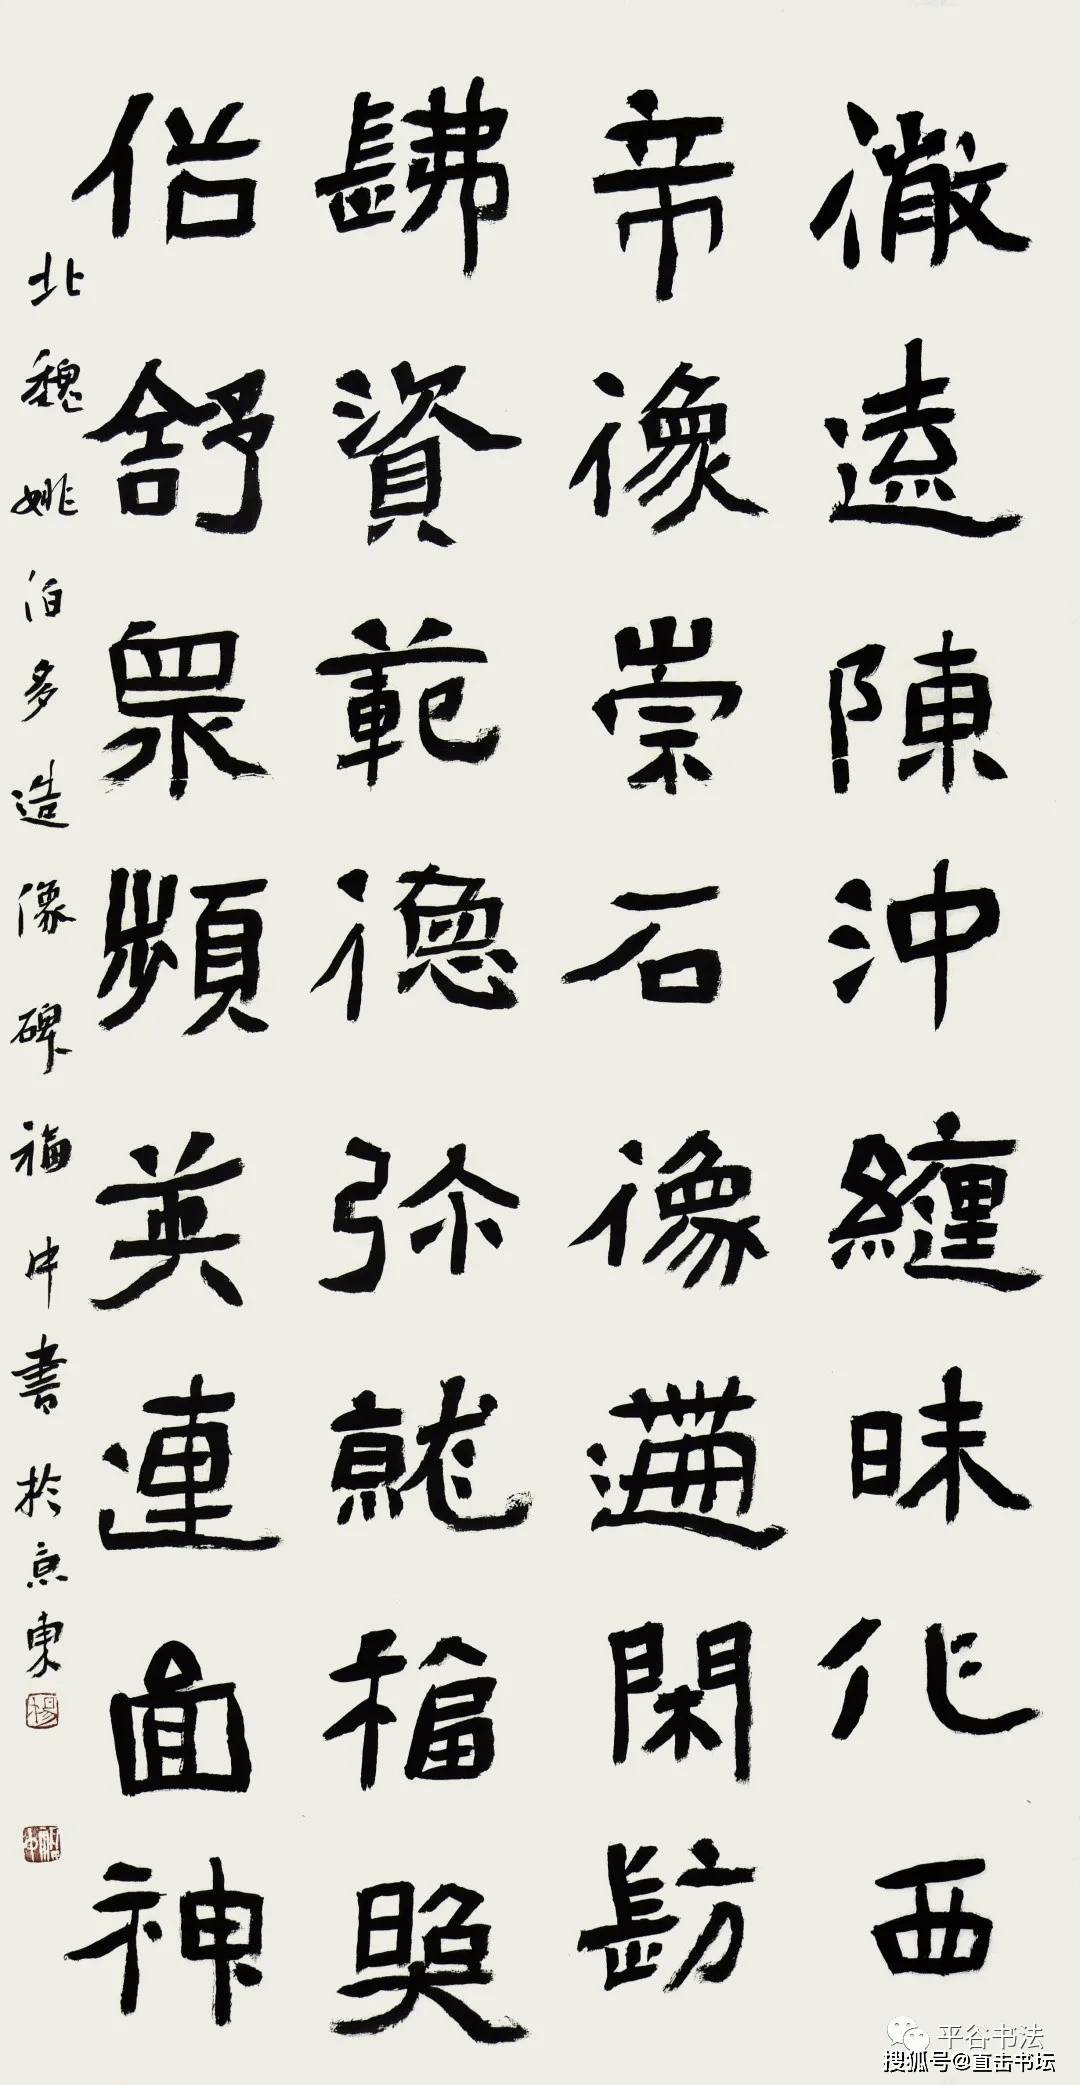 徹遠陳沖纏昧化西
帝像崇石像邁閑髣
髴資範德弥就福
俗舒眾頻英連神
北魏姚伯多造像碑福中書於京東
平谷书法
搜狐号@直击书坛